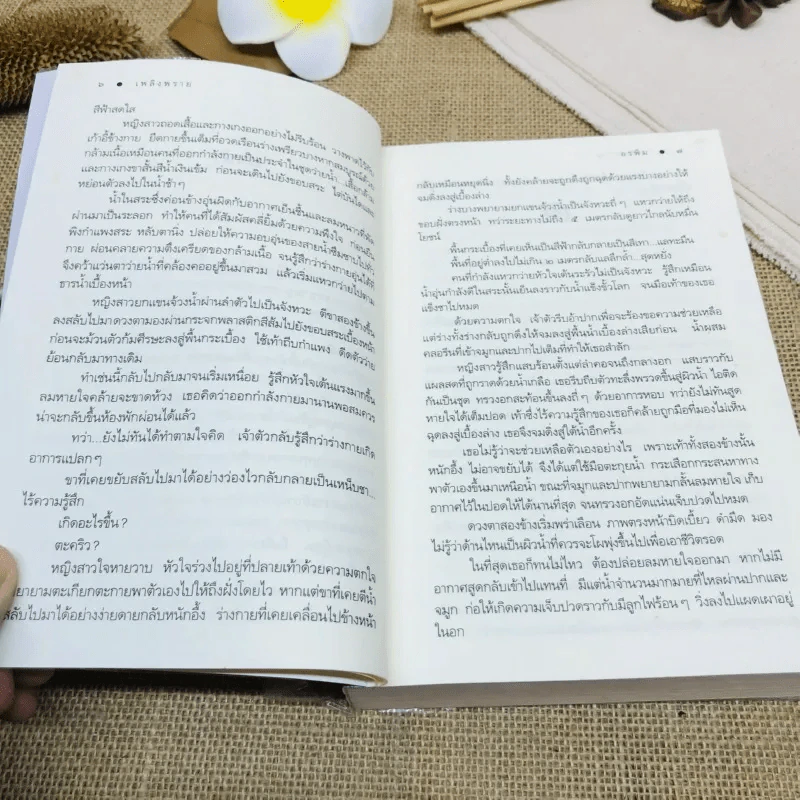 ๖ ● เพลิงพราย
สีฟ้าสดใส
หญิงสาวถอดเสื้อและกางเกงออกอย่างไม่รีบร้อน วางพาดไว้กับ
เก้าอี้ข้างกาย ยืดกายขึ้นเต็มที่อวดเรือนร่างเพรียวบางหากสมบูรณ์ด้วย
กล้ามเนื้อเหมือนคนที่ออกกำลังกายเป็นประจำในชุดว่ายน้ำ เสื้อกล้าม
และกางเกงขาสั้นสีน้ำเงินเข้ม ก่อนจะเดินไปยังขอบสระ ไต่บันไดและ
หย่อนตัวลงไปในน้ำช้าๆ
น้ำในสระซึ่งค่อนข้างอุ่นผิดกับอากาศเย็นชื้นและลมหนาวที่พัด
ผ่านมาเป็นระลอก ทำให้คนที่ได้สัมผัสคลี่ยิ้มด้วยความพึงใจ ก่อนยืน
พิงกำแพงสระ หลับตานิ่ง ปล่อยให้ความอบอุ่นของสายน้ำซึมซาบไปทั่ว
กาย ผ่อนคลายความตึงเครียดของกล้ามเนื้อ จนรู้สึกว่าร่างกายคุ้นได้ที่
จึงคว้าแว่นตาว่ายน้ำที่คล้องคออยู่ขึ้นมาสวม แล้วเริ่มแหวกว่ายไปตาม
ธารน้ำเบื้องหน้า
หญิงสาวยกแขนจ้วงน้ำผ่านลำตัวไปเป็นจังหวะ ตีขาสองข้างขึ้น
ลงสลับไปมาดวงตามองผ่านกระจกพลาสติกสีส้มไปยังขอบสระเบื้องหน้า
ก่อนจะม้วนตัวก้มศีรษะลงสู่พื้นกระเบื้อง ใช้เท้าถีบกำแพง ดีดตัวว่าย
ย้อนกลับมาทางเดิม
ทำเช่นนี้กลับไปกลับมาจนเริ่มเหนื่อย รู้สึกหัวใจเต้นแรงมากขึ้น
ลมหายใจคล้ายจะขาดห้วง เธอคิดว่าออกกำลังกายมานานพอสมควร
น่าจะกลับขึ้นห้องพักผ่อนได้แล้ว
ทว่า...ยังไม่ทันได้ทำตามใจคิด เจ้าตัวกลับรู้สึกว่าร่างกายเกิด
อาการแปลกๆ
ขาที่เคยขยับสลับไปมาได้อย่างว่องไวกลับกลายเป็นเหน็บชา...
ไร้ความรู้สึก
เกิดอะไรขึ้น?
ตะคริว?
หญิงสาวใจหายวาบ หัวใจร่วงไปอยู่ที่ปลายเท้าด้วยความตกใจ
พยายามตะเกียกตะกายพาตัวเองไปให้ถึงฝั่งโดยไว หากแต่ขาที่เคยตีน้ำ
สลับไปมาได้อย่างง่ายดายกลับหนักอึ้ง ร่างกายที่เคยเคลื่อนไปข้างหน้า
อรพิม ● ๗
กลับเหมือนหยุดนิ่ง ทั้งยังคล้ายจะถูกดึงถูกฉุดด้วยแรงบางอย่างให้
จมดิ่งลงสู่เบื้องล่าง
ร่างบางพยายามยกแขนจ้วงน้ำเป็นจังหวะถี่ๆ แหวกว่ายให้ถึง
ขอบฝั่งตรงหน้า ทว่าระยะทางไม่ถึง ๕ เมตรกลับดูยาวไกลนับหมื่น
โยชน์
พื้นกระเบื้องที่เคยเห็นเป็นสีฟ้ากลับกลายเป็นสีเทา...และทะมึน
พื้นที่อยู่ต่ำลงไปไม่เกิน ๒ เมตรกลับแลลึกล้ำ...สุดหยั่ง
คนที่กำลังแหวกว่ายหัวใจเต้นระรัวไม่เป็นจังหวะ รู้สึกเหมือน
น้ำอุ่นกำลังดีในสระนั้นเย็นลงราวกับน้ำแข็งขั้วโลก จนมือเท้าของเธอ
แข็งชาไปหมด
ด้วยความตกใจ เจ้าตัวรีบอ้าปากเพื่อจะร้องขอความช่วยเหลือ
แต่ร่างทั้งร่างกลับถูกดึงให้จมลงสู่พื้นน้ำเบื้องล่างเสียก่อน น้ำผสม
คลอรีนที่เข้าจมูกและปากไปเต็มที่ทำให้เธอสำลัก
หญิงสาวรู้สึกแสบร้อนตั้งแต่ลำคอจนถึงกลางอก แสบราวกับ
แผลสดที่ถูกราดด้วยน้ำเกลือ เธอรีบถีบตัวทะลึ่งพรวดขึ้นสู่ผิวน้ำ ไอติด
กันเป็นชุด ทรวงอกสะท้อนขึ้นลงถี่ๆ ด้วยอาการหอบ ทว่ายังไม่ทันสูด
หายใจได้เต็มปอด เท้าซึ่งไร้ความรู้สึกของเธอก็คล้ายถูกมือที่มองไม่เห็น
ฉุดลงสู่เบื้องล่าง เธอจึงจมดิ่งสู่ใต้น้ำอีกครั้ง
เธอไม่รู้ว่าจะช่วยเหลือตัวเองอย่างไร เพราะเท้าทั้งสองข้างนั้น
หนักอึ้ง ไม่อาจขยับได้ จึงได้แต่ใช้มือตะกุยน้ำ กระเสือกกระสนหาทาง
พาตัวเองขึ้นมาเหนือน้ำ ขณะที่จมูกและปากพยายามกลั้นลมหายใจ เก็บ
อากาศไว้ในปอดให้ได้นานที่สุด จนทรวงอกอัดแน่นเจ็บปวดไปหมด
ดวงตาสองข้างเริ่มพร่าเลือน ภาพตรงหน้าบิดเบี้ยว ดำมืด มอง
ไม่รู้ว่าด้านไหนเป็นผิวน้ำที่ควรจะโผพุ่งขึ้นไปเพื่อเอาชีวิตรอด
ในที่สุดเธอก็ทนไม่ไหว ต้องปล่อยลมหายใจออกมา หากไม่มี
อากาศสูดกลับเข้าไปแทนที่ มีแต่น้ำจำนวนมากมายที่ไหลผ่านปากและ
จมูก ก่อให้เกิดความเจ็บปวดราวกับมีลูกไฟร้อนๆ วิ่งลงไปแผดเผาอยู่
ในอก